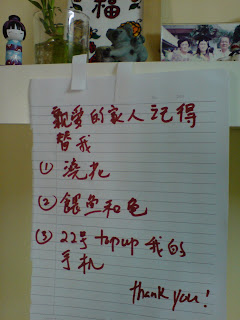 福
親愛的家人记得
替我
① 澆花
② 餵魚和龟
③ 22号 topup 我的
手机
thank you!